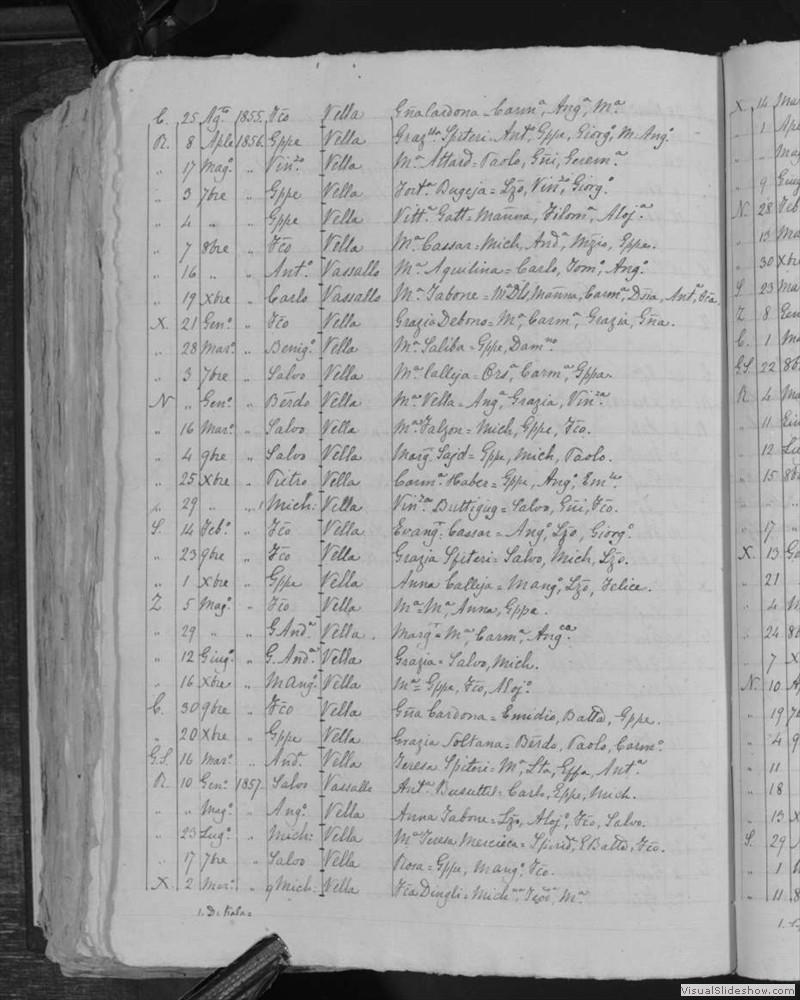 C. 25 Agto 1855 Fco Vella Gña Cardona Carma, Anga, Ma
R. 8 Aple 1856 Gppe Vella Grazlla Spiteri = Anta, Gppe, Giorgo, M. Ango
" 17 Mago " Vinzo Vella Ma Attard = Paolo, Gñi, Gerema
" 3 7bre " Gppe Vella Forta Bugeja = Lzo, Vinzo, Giorgo
" 4 " " Gppe Vella Vitta Gatt = Mañna, Filoma, Aloja
" 7 8bre " Fco Vella Ma Cassar = Mich, Anda, Nzio, Gppe.
" 16 " " Anto Vassallo Ma Aquilina = Carlo, Tomo, Ango
" 19 Xbre " Carlo Vassallo Ma Tabone = Ma Dls, Mañna, Carma, Dña, Anta, Fca
X. 21 Geno " Fco Vella Grazia Debono = Ma, Carma, Grazia, Gña.
" 28 Maro " Benigo Vella Ma Saliba = Gppe, Damno
" 3 7bre " Salvo Vella Ma Calleja = Orsa, Carma, Gppa
N " Geno " Bėrdo Vella Ma Vella = Anga, Grazia, Vinza
" 16 Maro " Salvo Vella Ma Falzon = Mich, Gppe, Fco.
" 4 9bre " Salvo Vella Marg Sajd = Gppe, Mich, Paolo.
" 25 Xbre " Pietro Vella Carma Haber = Gppe, Ango, Emle
" 29 " " 1 Mich: Vella Vinza Buttigieg = Salvo, Gñi, Fco.
S. 14 Febo " Fco Vella Evanga Cassar = Ango, Lzo, Giorgo
" 23 9bre " Fco Vella Grazia Spiteri = Salvo, Mich, Lzo.
" 1 Xbre " Gppe Vella Anna Calleja = M ango, Lzo, Felice.
Z 5 Mago " Fco Vella Ma = Ma, Anna, Gppa.
" 29 " " G. Anda Vella. Marga = Ma, Carma, Angca
" 12 Giugo " G. Anda Vella Grazia = Salvo, Mich.
" 16 Xbre " M Ango Vella Ma = Gppe, Fco, Alojo
C. 30 9bre " Fco Vella Gña Cardona = Emidio, Batta, Gppe.
" 20 Xbre " Gppe Vella Grazia Soltana = Bėrdo, Paolo, Carmo
G.S. 16 Maro " Anda Vella Teresa Spiteri = Ma, Sta, Gppa, Anta
R. 10 Geno 1857 Salvo Vassallo Anta Busuttil = Carlo, Gppe, Mich.
" " Mago " Ango Vella Anna Tabone = Lzo, Alojo, Fco, Salvo.
" 23 Lugo " Mich: Vella Ma Teresa Mercieca = Spirid. G Batta, Fco.
" 17 7bre " Salvo Vella Rosa = Gppe, M ango, Fco.
X. 2 Maro " 9 Mich: Vella Fca Dingli = Mich, Ma
1. D: Kala=
X. 14 Ma
" 1 Apl
" " Mag
" 9 Giug
N. 28 Feb
" 13 Ma
" 30 Xbre
S 23 Ma
Z 8 Gen
C. 1 Ma
G.S. 22 8b
R. 4 Ma
" 11 Giu
" 12 Lu
" 15 8b
" 17 "
X. 13 Ge
" 21
" 4
" 24 8b
" 7 X
N. 10 A
" 19 7b
" 4 9
" 11
" 18
" 13 X
S. 29
" 1
" 11 8
VisualSlideshow.com